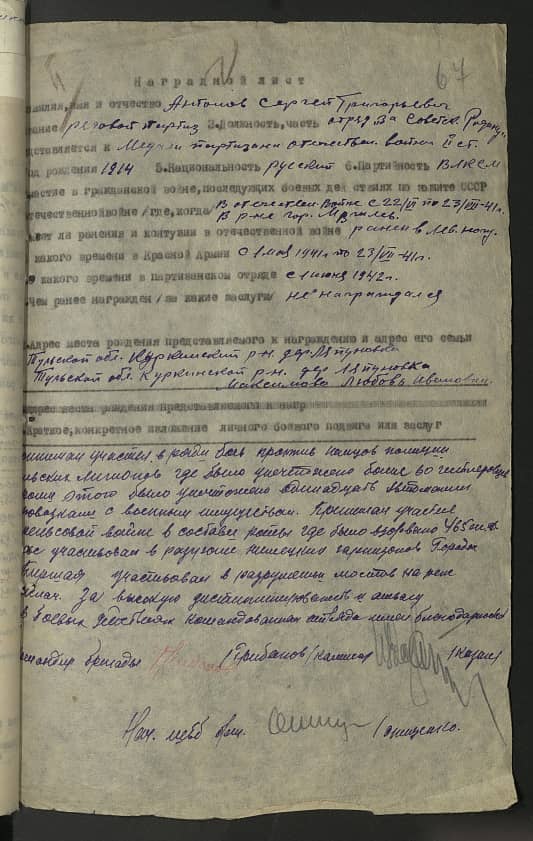 67
Наградной лист
амилия, имя и отчество Антонов Сергей Григорьевич
вание рядовой партиз 3.Должность, часть отряд За Советск. Родину
дставляется к Медали партизана отечествен. войны II ст.
од рождения 1914 5.Национальность русский 6.Партийность ВЛКСМ
частие в гражданской войне, последующих боевых действиях по защите СССР
течественной войне /где, когда/ В отечествен. войне с 22/VI по 23/VII-41г.
В р-не гор. Могилев.
еет ли ранения и контузии в отечественной войне ранен в лев. ногу.
какого времени в Красной Армии с 1 мая 1941г по 23/VII-41г.
9 какого времени в партизанском отряде с 1 июня 1942г.
.Чем ранее награжден /за какие заслуги/ не награждался
.Адрес места рождения представляемого к награждению и адрес его семьи
Тульской обл. Куркинский р-н. дер. Ляпуновка
Тульской обл. Куркинской р-н. дер Ляпуновка
Максимова Любовь Ивановна.
Адрес места рождения представляемого к нагр
.Краткое, конкретное изложение личного боевого подвига или заслуг
ринимал участие в ряде боев против немцев полиции
льских легионов где было уничтожено более 80 гитлеровцев
роме этого было уничтожено одинадцать автомашин
повозками с военным имуществом. Принимал участие
рельсовой войне в составе роты где было взорвано 465
участвовал в разгроме немецких гарнизонов
участвовал в разрушении мостов на реке
За высокую дисциплинированность и отвагу
в боевых действиях командованием отряда имеет благодарность
омандир бригады /Грибанов/ комиссар /Казак
Нач. штаб бриг. /Онищенко.